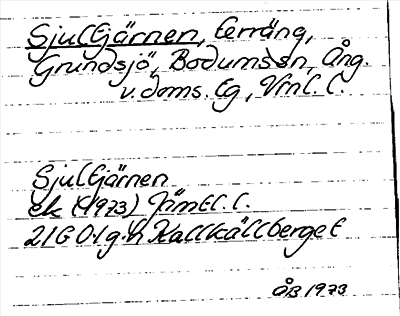 Sjultjärnen, terräng,
Grundsjö, Bodums sn, Ång.
v. doms. tg, Vrnl. l.
Sjultjärnen
ek (1973) Jämtl. l.
21G 0-1 g-h Kallkällberget
ÅB 1973